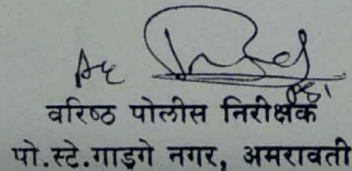 वरिष्ठ पोलीस निरीक्षक
पो.स्टे.गाडगे नगर, अमरावती